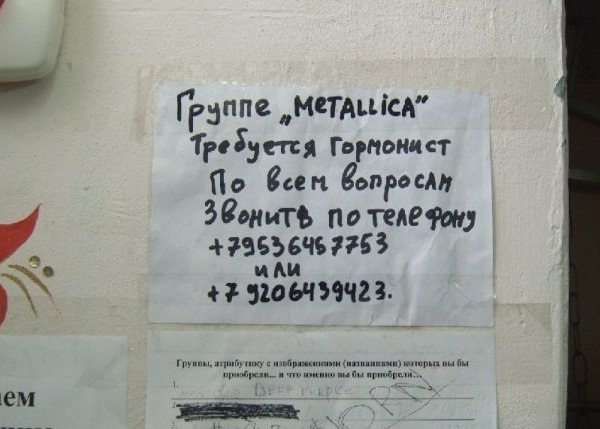 Группе „METALLiCA"
Требуется гормонист
По всем вопросам
Звонить по телефону
+79536457753
или
+7 9206439423.
Группы, атрибутику с изображениями (названиями) которых вы бы
приобрели... и что именно вы бы приобрели...
1.
DEEP PURPLE
KORN
ем